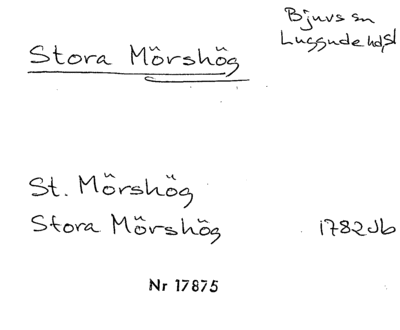 Bjuvs sn
Luggude hd, Sk
Stora Mörshög
St. Mörshög
Stora Mörshög 1782 Jb
Nr 17875